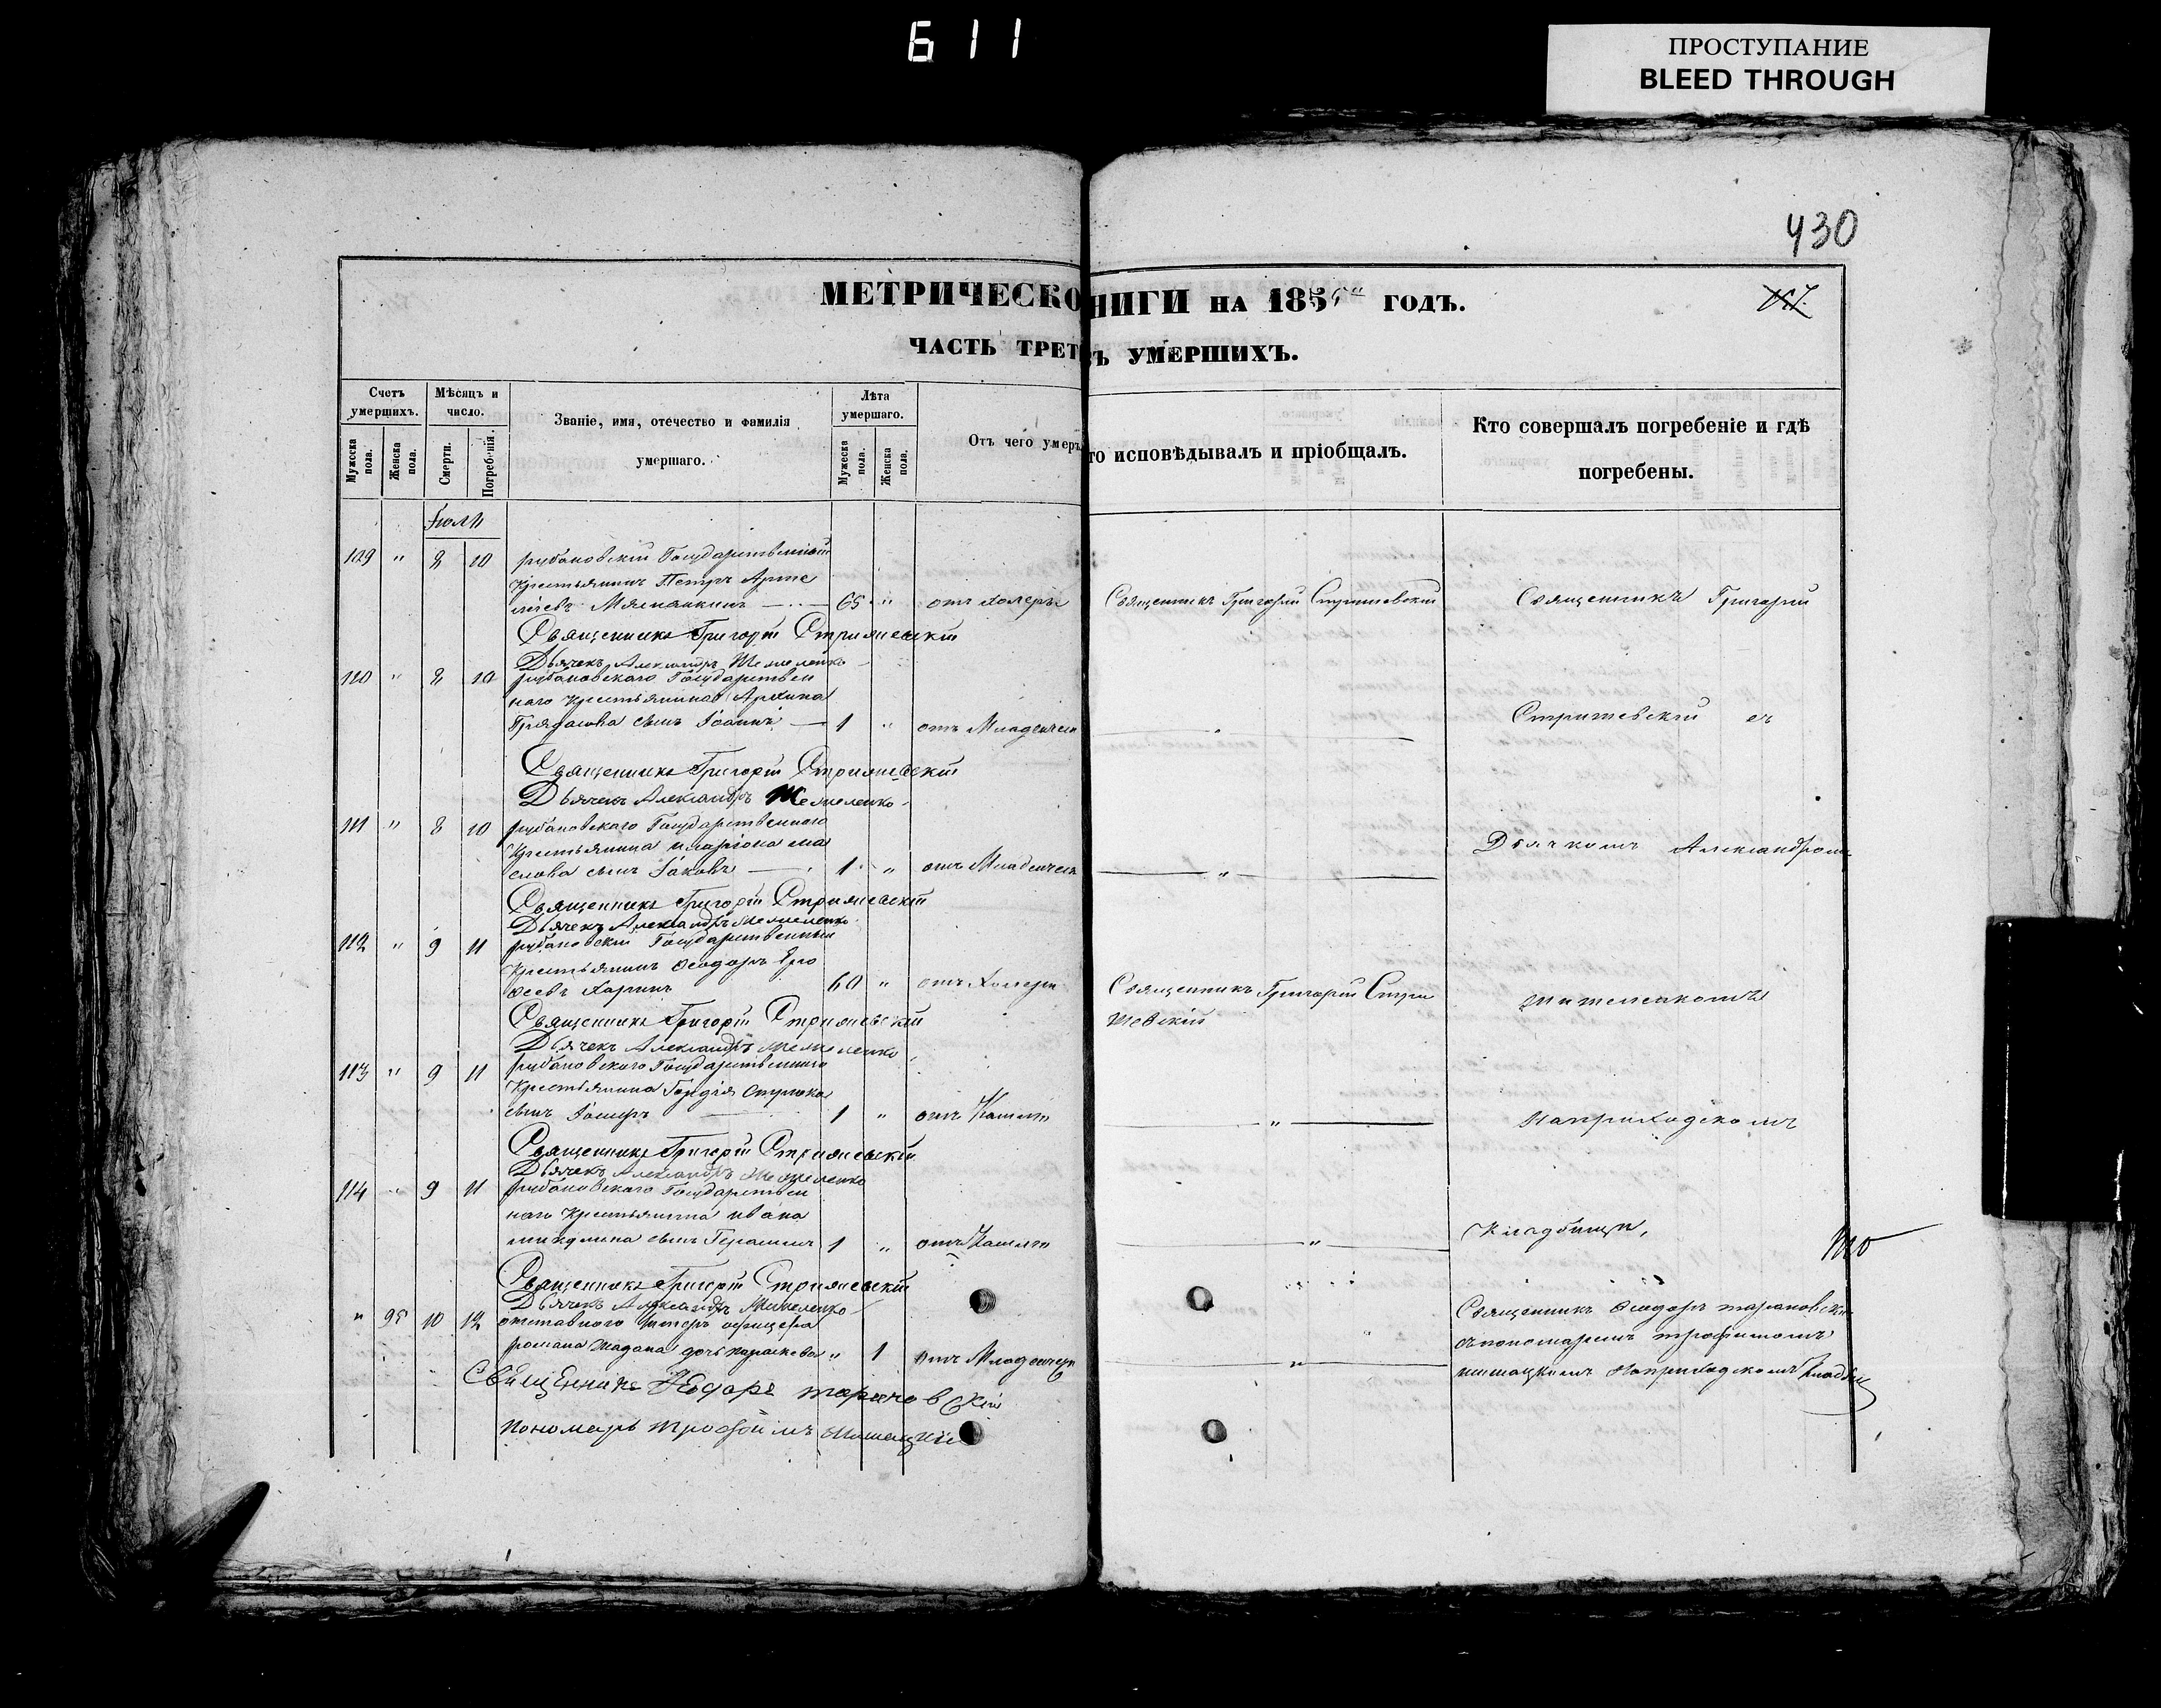 611
ПРОСТУПАНИЕ
BLEED THROUGH
430
МЕТРИЧЕСКО НИГИ НА 185 ГОДЪ.
ЧАСТЬ ТРЕТ Ъ УМЕРШИХЪ.
Счетъ умершихъ.
Мужеска пола.
Женска пола.
Мѣсяцъ и число.
Смерти.
Погребенія.
Званіе, имя, отечество и фамилія умершаго.
Лѣта умершаго.
Мужеска пола.
Женска пола.
Отъ чего умеръ
то исповѣдывалъ и пріобщалъ.
Кто совершалъ погребеніе и гдѣ погребены.
Іюль
109 " 8 10 рубановскій Государственный
Крестьянинъ Петръ Арте
65 " отъ холеры Священникъ Григорій Стрижевскій Священникъ Григорій
Священникъ Григорій Стрижевскій
Дьячекъ Александръ
110 " 8 10 рубановскаго Государствен
наго Крестьянина Архипа
сынъ Іоаннъ 1 " отъ Младенческ " Стрижевскій съ
Священникъ Григорій Стрижевскій
Дьячекъ Александръ
111 " 8 10 рубановскаго Государственнаго
Крестьянина Иларіона ма
слова сынъ Іаковъ 1 " отъ Младенческ " Дьячкомъ Александромъ
Священникъ Григорій Стрижевскій
Дьячекъ Александръ
112 " 9 11 рубановскій Государственный
Крестьянинъ Ѳеодоръ Еро
ѳеевъ Харинъ 60 " отъ Холеры Священникъ Григорій Стри
жевскій
Священникъ Григорій Стрижевскій
Дьячекъ Александръ
113 " 9 11 рубановскаго Государственнаго
Крестьянина Гордія
сынъ 1 " отъ Кашля " Наприходскомъ
Священникъ Григорій Стрижевскій
Дьячекъ Александръ
114 " 9 11 рубановскаго Государствен
наго Крестьянина Ивана
микулина сынъ Герасимъ 1 " отъ Кашля " Кладбищѣ,
Священникъ Григорій Стрижевскій
Дьячекъ Александръ
" 95 10 12 отставного унтеръ офицера
романа дочь параскева " 1 отъ Младенческ "
Священникъ Ѳеодоръ тарановскій
съпономаремъ трофимомъ
Наприходскомъ
Священникъ Ѳеодоръ тарановскій
пономарь трофимъ